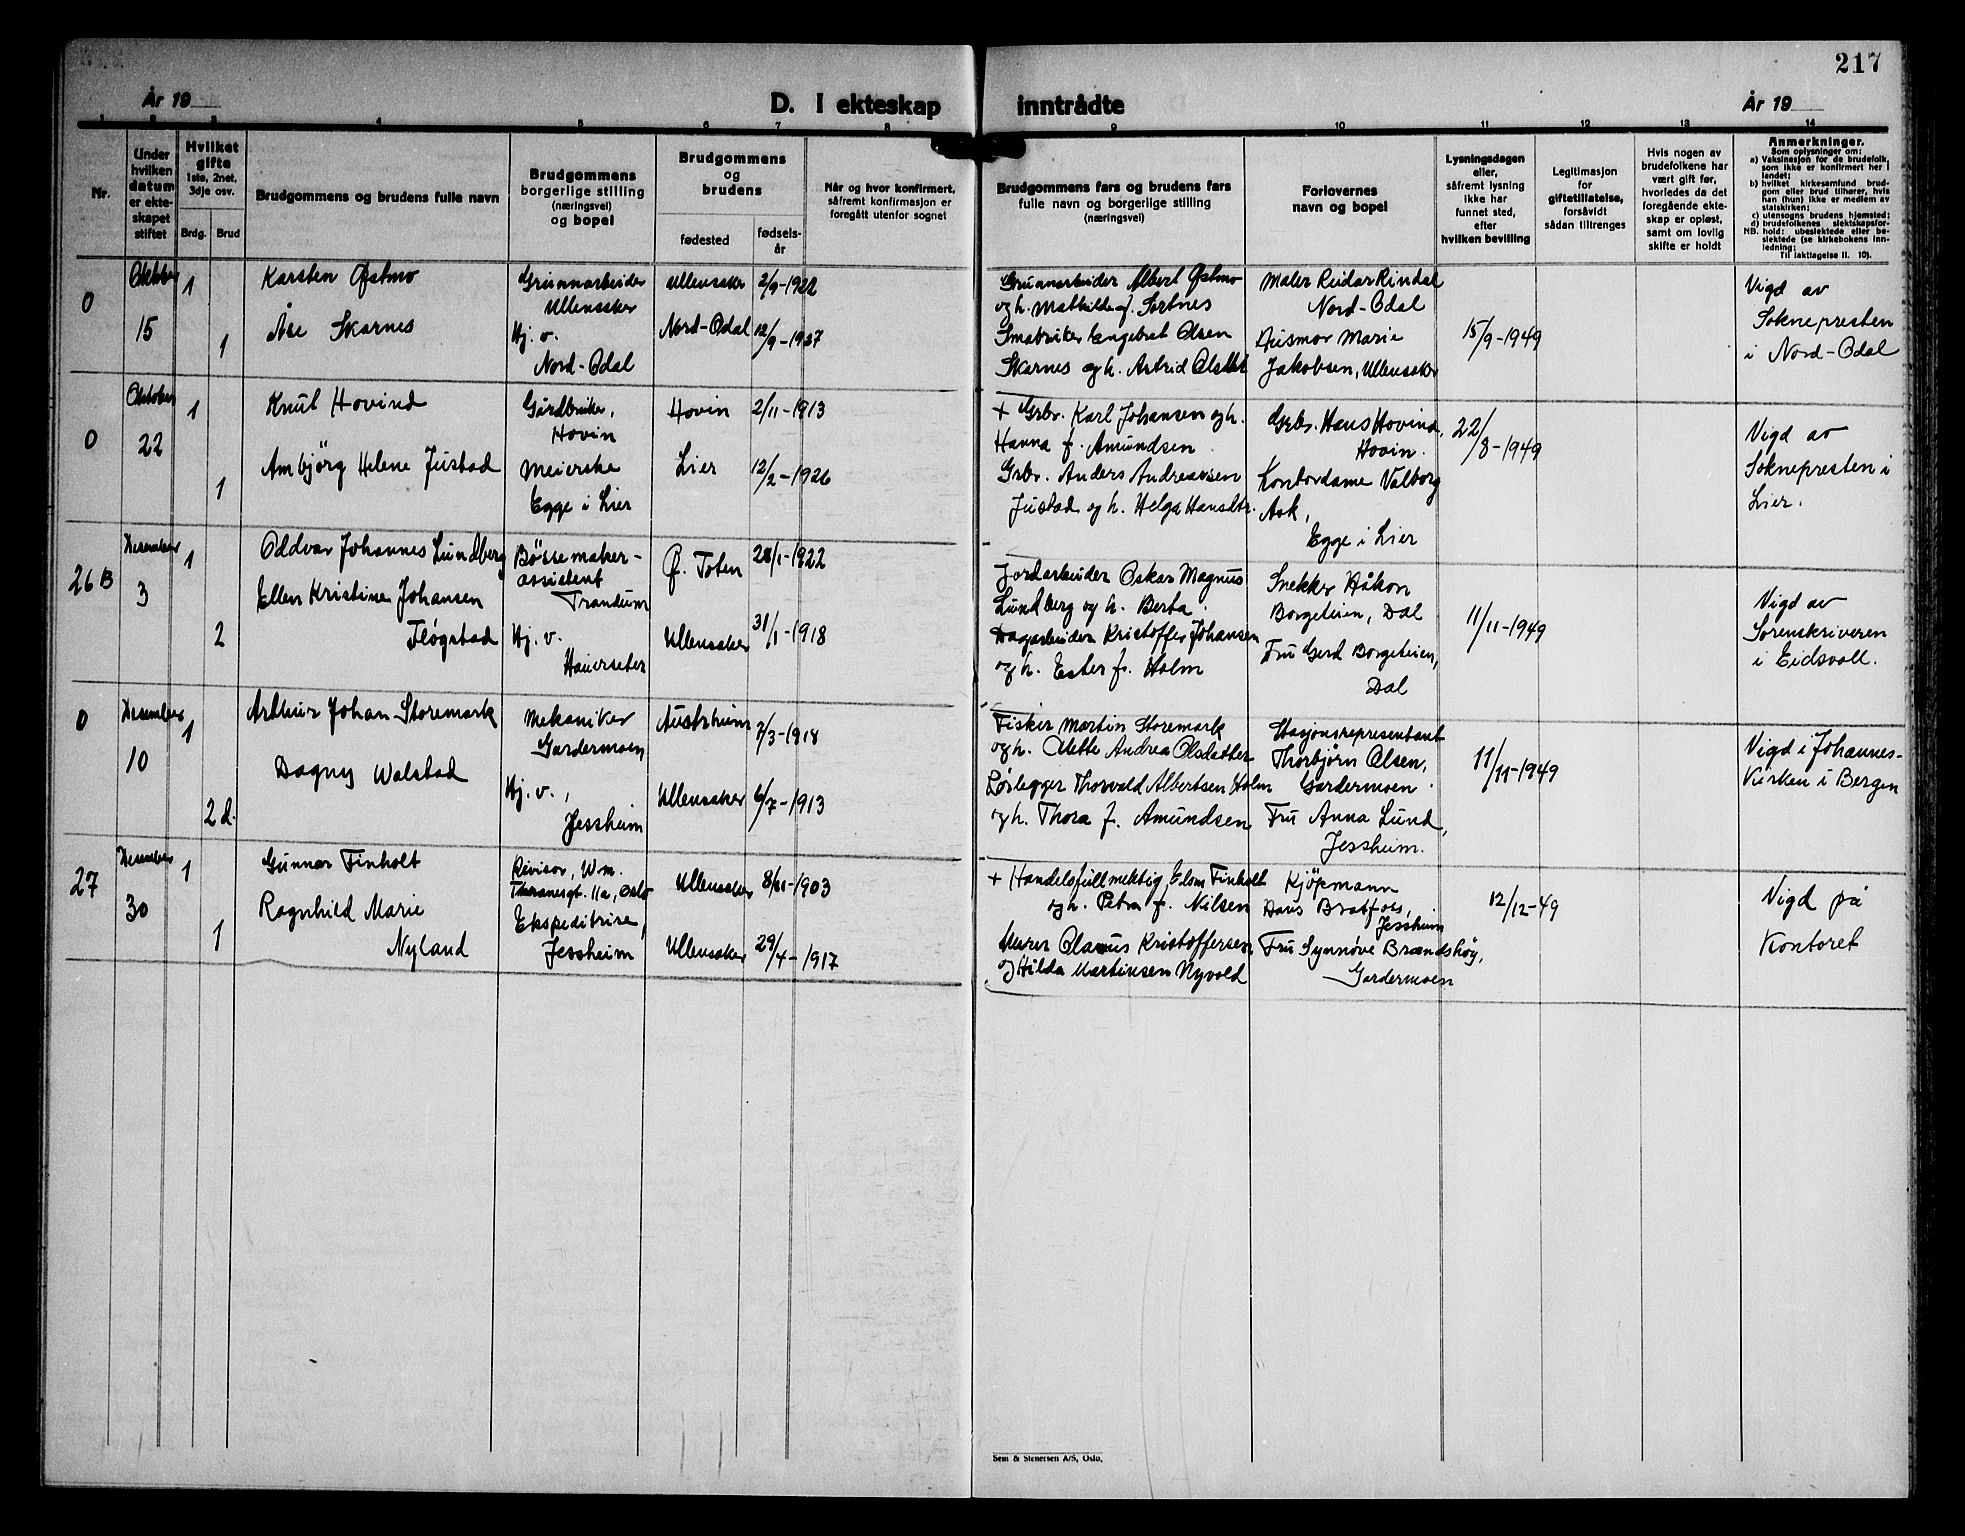 217
År 19
D. I ekteskap
inntrådte
År 19
1 2 3 4 5 6 7 8 9 10 11 12 13 14
Nr.
Under
hvilken
datum
er ekte-
skapet
stiftet
Hvilket
gifte
1ste, 2net,
3dje osv.
Brdg.
Brud
Brudgommens og brudens fulle navn
Brudgommens
borgerlige stilling
(næringsvei)
og bopel
Brudgommens
og
brudens
fødested
fødsels-
år
Når og hvor konfirmert,
såfremt konfirmasjon er
foregått utenfor sognet
Brudgommens fars og brudens fars
fulle navn og borgerlige stilling
(næringsvei)
Forlovernes
navn og bopel
Lysningsdagen
eller,
såfremt lysning
ikke har
funnet sted,
efter
hvilken bevilling
Legitimasjon
for
giftetillatelse,
forsåvidt
sådan tiltrenges
Hvis nogen av
brudefolkene har
vært gift før,
hvorledes da det
foregående ekte-
skap er opløst,
samt om lovlig
skifte er holdt
Anmerkninger.
Som oplysninger om:
a) Vaksinasjon for de brudefolk,
som ikke er konfirmert her i
landet;
b) hvilket kirkesamfund brud-
gom eller brud tilhører, hvis
han (hun) ikke er medlem av
statskirken;
c) utensogns brudens hjemsted;
d) brudefolkenes slektskapsfor-
hold: ubeslektede eller be-
slektede (se kirkebokens inn-
ledning;
NB.
Til iakttagelse II. 10).
0
Oktober
15
1
1
Karsten Østmo
Åse Skarnes
Grunnarbeider
Ullensaker
Hj. v.
Nord-Odal
Ullensaker
Nord-Odal
2/9-1922
12/9-1927
Grunnarbeider Albert Østmo
og h. Mathilde f. Sortnes
Småbruker Engebret Olsen
Skarnes og h. Astrid Olsdtr
Maler Reidar Rindal
Nord-Odal
Ausmor Marie
Jakobsen, Ullensaker
15/9-1949
Vigd av
Soknepresten
i Nord-Odal
0
Oktober
22
1
1
Knut Hovind
Ambjörg Helene Justad
Gårdbruker,
Hovin
Meierske
Egge i Lier
Hovin
Lier
2/11-1913
12/2-1926
+ Grbr. Karl Johansen og h.
Hanna f. Amundsen
Grbr. Anders Andreassen
Justad og h. Helga Hansdtr.
Grbr. Hans Hovind,
Hovin.
Kontordame Valborg
Ask,
Egge i Lier
22/8-1949
Vigd av
Soknepresten i
Lier.
26B
Desember
3
1
2
Oddvar Johannes Lundberg
Ellen Kristine Johansen
Fløgstad
Bössemaker-
assistent
Trandum
Hj. v.
Hauerseter
Ø. Toten
Ullensaker
28/1-1922
31/1-1918
Jordarbeider Oskar Magnus
Lundberg og h. Berta
Dagarbeider Kristoffer Johansen
og h. Ester f. Holm
Snekker Håkon
Borgeteien, Dal
Fru Gerd Borgeteien,
Dal
11/11-1949
Vigd av
Sorenskriveren
i Eidsvoll.
0
Desember
10
1
2 d.
Arthur Johan Storemark
Dagny Walstad
Mekaniker
Gardermoen
Hj. v.,
Jessheim
Austrheim
Ullensaker
7/3-1918
6/7-1913
Fisker Martin Storemark
og h. Olette Andrea Olsdatter
Löslegger Thorvald Albertsen Holm
og h. Thora f. Amundsen
Stasjonsrepresentant
Thorbjörn Olsen,
Gardermoen
Fru Anna Lund,
Jessheim.
11/11-1949
Vigd i Johannes-
Kirken i Bergen
27
Desember
30
1
1
Gunnar Finholt
Ragnhild Marie
Nyland
Revisor, Wm.
Thranesgt. 11a, Oslo
Ekspeditrise,
Jessheim
Ullensaker
Ullensaker
8/11-1903
29/4-1917
+ Handelsfullmektig Elom Finholt
og h. Petra f. Nilsen
Murer Olaus Kristoffersen
og Hilda Martinsen Nyvold
Kjöpmann
Hans Bratfoss,
Jessheim
Fru Synnöve Brændshöy,
Gardermoen
12/12-49
Vigd på
Kontoret
Sem & Stenersen A/S, Oslo.